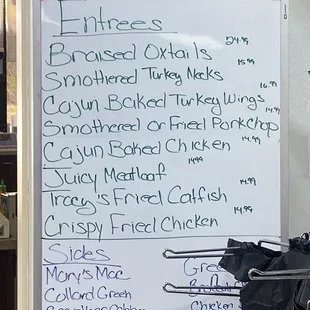 Entrees
Braised Oxtails 24.99
Smothered Turkey Necks 15.99
Cajun Baked Turkey Wings 16.99
Smothered or Fried Pork Chop 14.99
Cajun Baked Chicken 14.99
Juicy Meatloaf 14.99
Tracy's Fried Catfish 14.99
Crispy Fried Chicken 14.99
Sides
Mary's Mac
Collard Green
Chicken